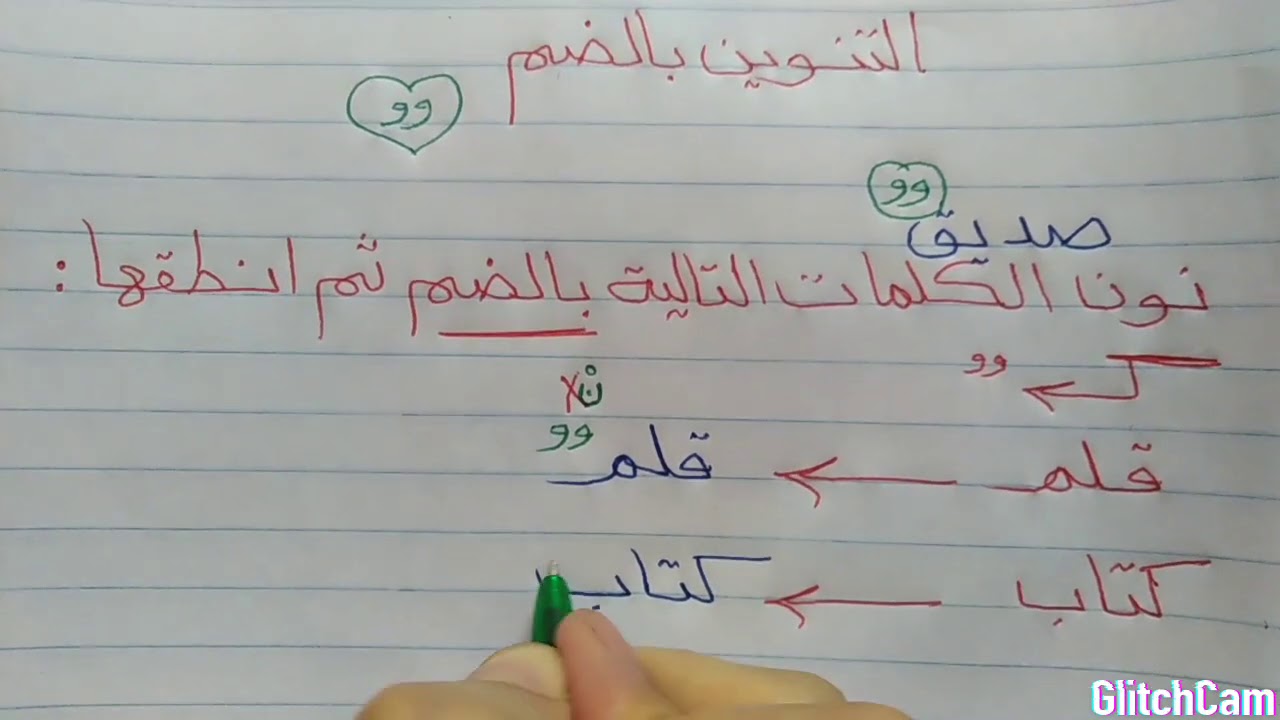 التنوين بالضم
وو
وو
صديق
نونا الكلمات التالية بالضم ثم انطقها :
وو
ن x
وو
قلم ← قلم
كتاب ← كتاب
GlitchCam